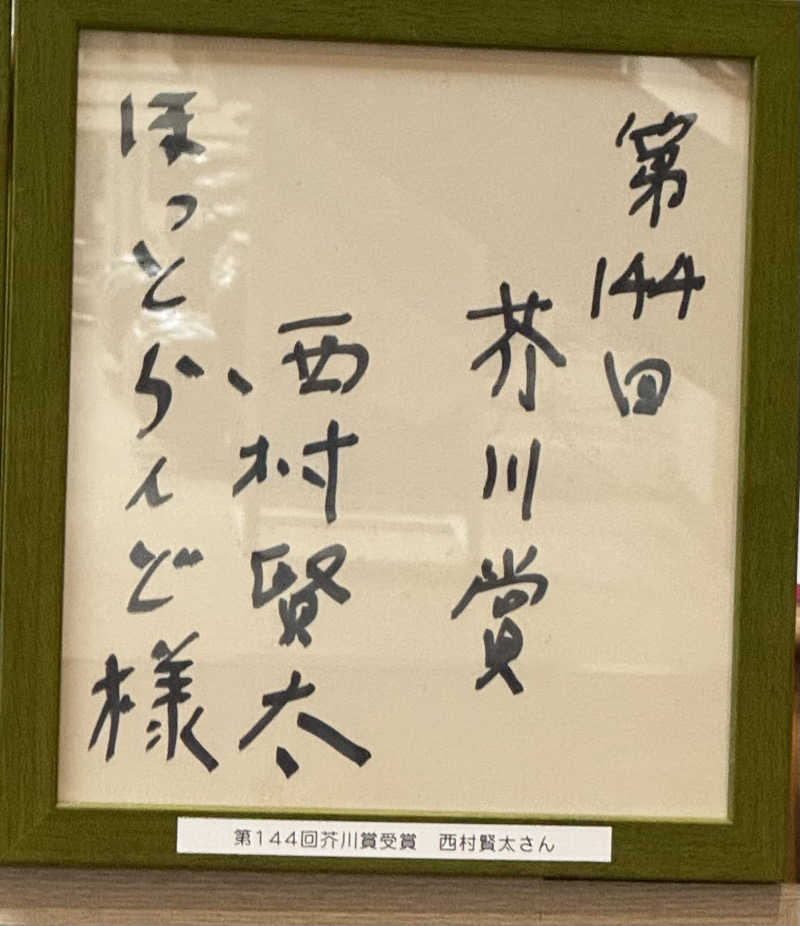 第144回
芥川賞
西村賢太
ほっとらんど様
第144回芥川賞受賞　西村賢太さん